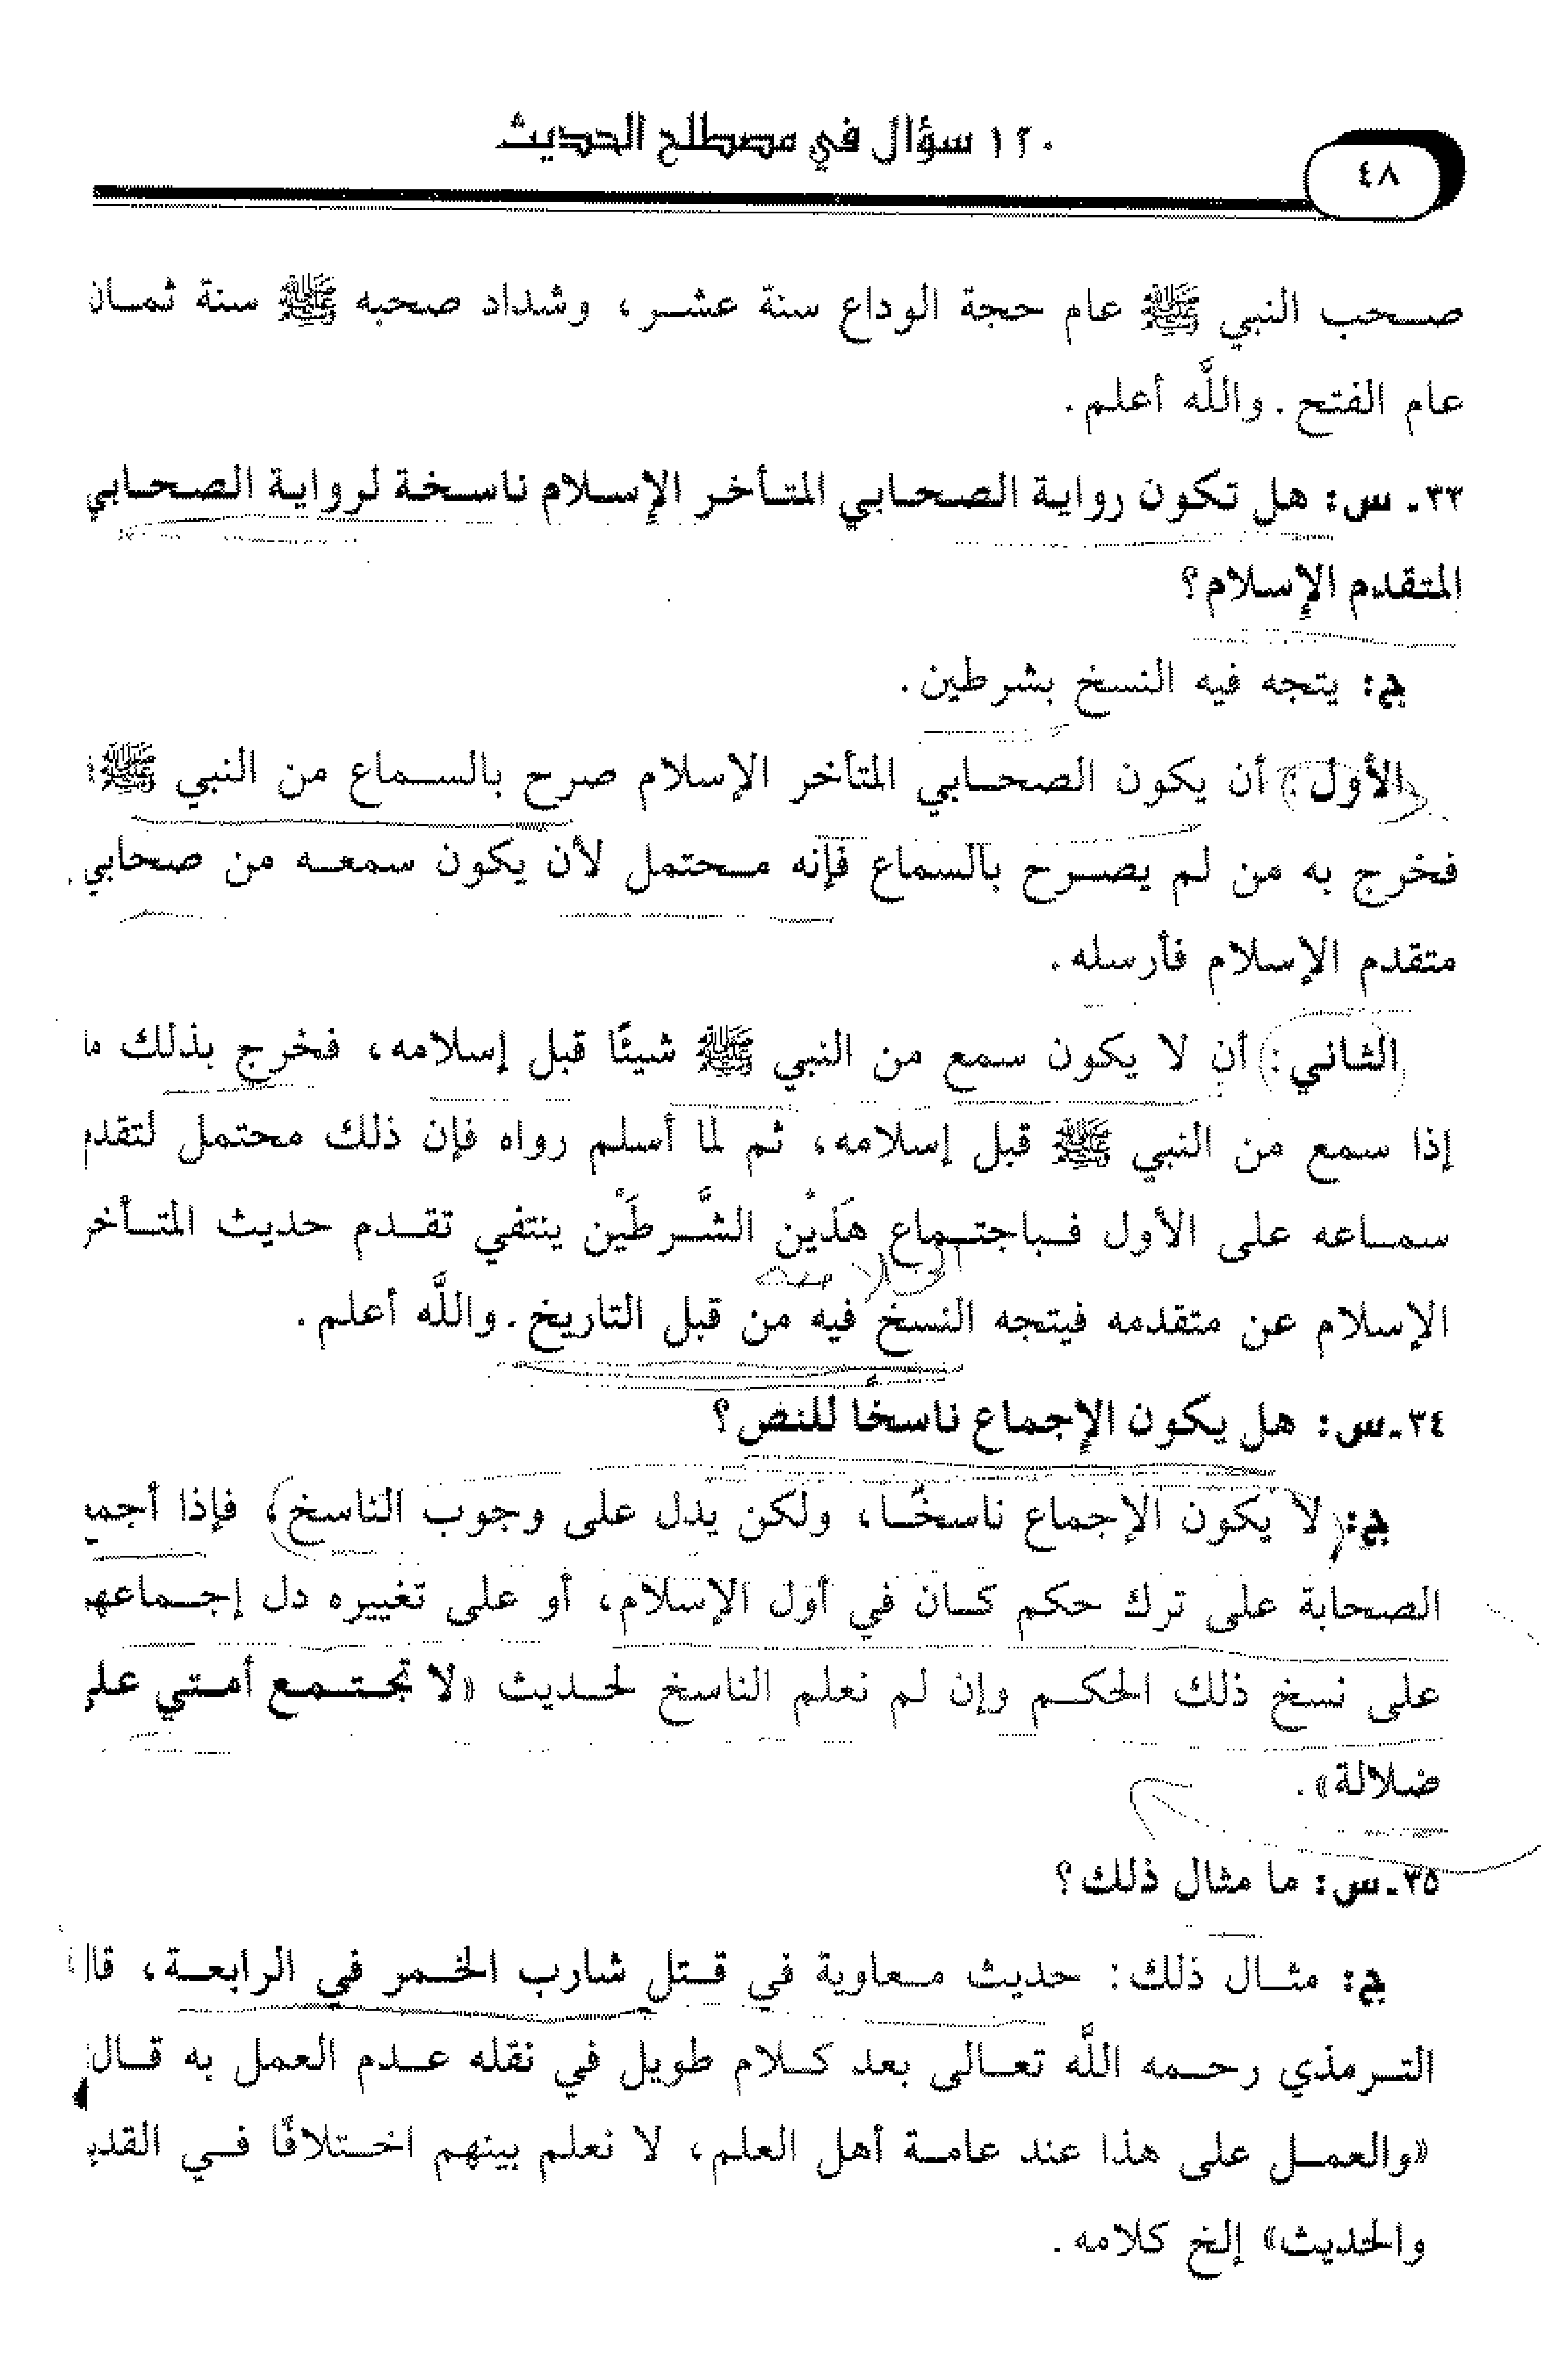 ١٢٠ سؤال في مصطلح الحديث
٤٨
صحب النبي ﷺ عام حجة الوداع سنة عشر، وشداد صحبه ﷺ سنة ثمان
عام الفتح. واللَّه أعلم.
٣٣ـ س: هل تكون رواية الصحابي المتأخر الإسلام ناسخة لرواية الصحابي
المتقدم الإسلام؟
ج: يتجه فيه النسخ بشرطين.
الأول: أن يكون الصحابي المتأخر الإسلام صرح بالسماع من النبي ﷺ؛
فخرج به من لم يصرح بالسماع فإنه محتمل لأن يكون سمعه من صحابي
متقدم الإسلام فأرسله.
الثاني: أن لا يكون سمع من النبي ﷺ شيئًا قبل إسلامه، فخرج بذلك ما
إذا سمع من النبي ﷺ قبل إسلامه، ثم لما أسلم رواه فإن ذلك محتمل لتقدم
سماعه على الأول فباجتماع هَذَيْن الشَّرطَيْن ينتفي تقدم حديث المتأخر
الإسلام عن متقدمه فيتجه النسخ فيه من قبل التاريخ. واللَّه أعلم.
٣٤ـ س: هل يكون الإجماع ناسخًا للنص؟
ج: لا يكون الإجماع ناسخًا، ولكن يدل على وجوب الناسخ، فإذا أجمع
الصحابة على ترك حكم كان في أول الإسلام، أو على تغييره دل إجماعهم
على نسخ ذلك الحكم وإن لم نعلم الناسخ لحديث «لا تجتمع أمتي على
ضلالة».
٣٥ـ س: ما مثال ذلك؟
ج: مثال ذلك: حديث معاوية في قتل شارب الخمر في الرابعة، قال
الترمذي رحمه اللَّه تعالى بعد كلام طويل في نقله عدم العمل به قال
«والعمل على هذا عند عامة أهل العلم، لا نعلم بينهم اختلافًا في القديم
والحديث» إلخ كلامه.